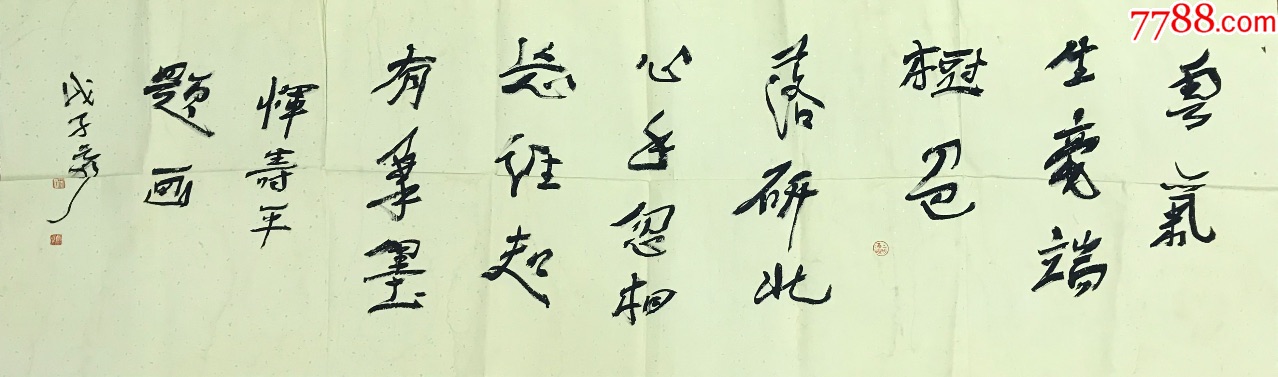 7788.com
雲氣
生毫端
樹色
落研北
心手忽相
忘誰知
有筆墨
惲壽平
題画
戊子